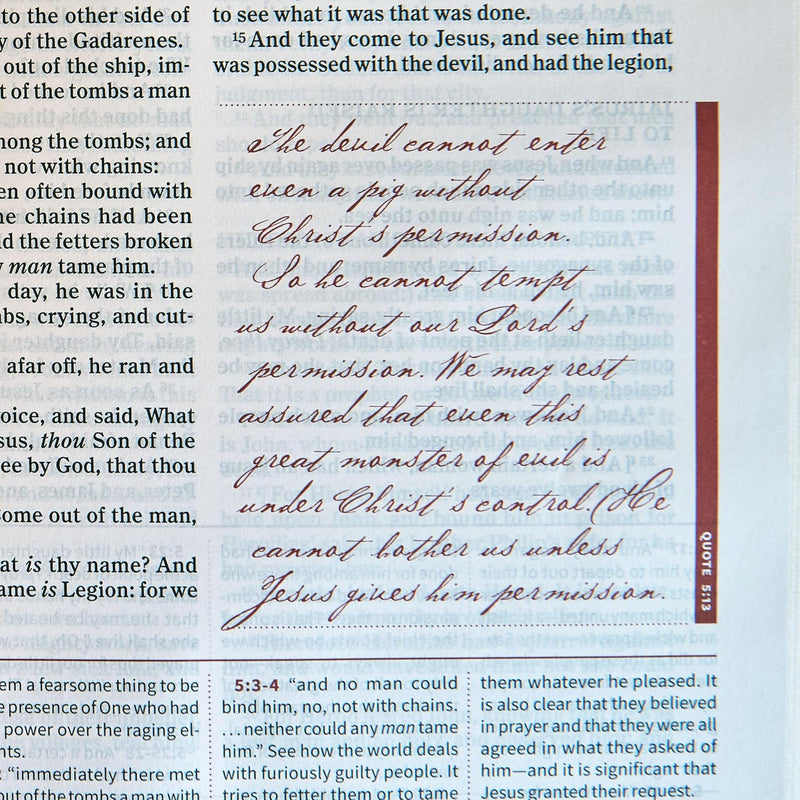 to the other side of
y of the Gadarenes.
out of the ship, im-
t of the tombs a man
nong the tombs; and
not with chains:
en often bound with
he chains had been
ld the fetters broken
y man tame him.
day, he was in the
mbs, crying, and cut-
afar off, he ran and
voice, and said, What
sus, thou Son of the
ee by God, that thou
Come out of the man,
at is thy name? And
ame is Legion: for we
to see what it was that was done.
15 And they come to Jesus, and see him that
was possessed with the devil, and had the legion,
The devil cannot enter
even a pig without
Christ's permission.
So he cannot tempt
us without our Lord's
permission. We may rest
assured that even this
great monster of evil is
under Christ's control. (He
cannot bother us unless
Jesus gives him permission.
QUOTE 5:13
em a fearsome thing to be
e presence of One who had
power over the raging el-
nts.
"immediately there met
out of the tombs a man with
5:3-4 "and no man could
bind him, no, not with chains.
. . . neither could any man tame
him." See how the world deals
with furiously guilty people. It
tries to fetter them or to tame
them whatever he pleased. It
is also clear that they believed
in prayer and that they were all
agreed in what they asked of
him—and it is significant that
Jesus granted their request.